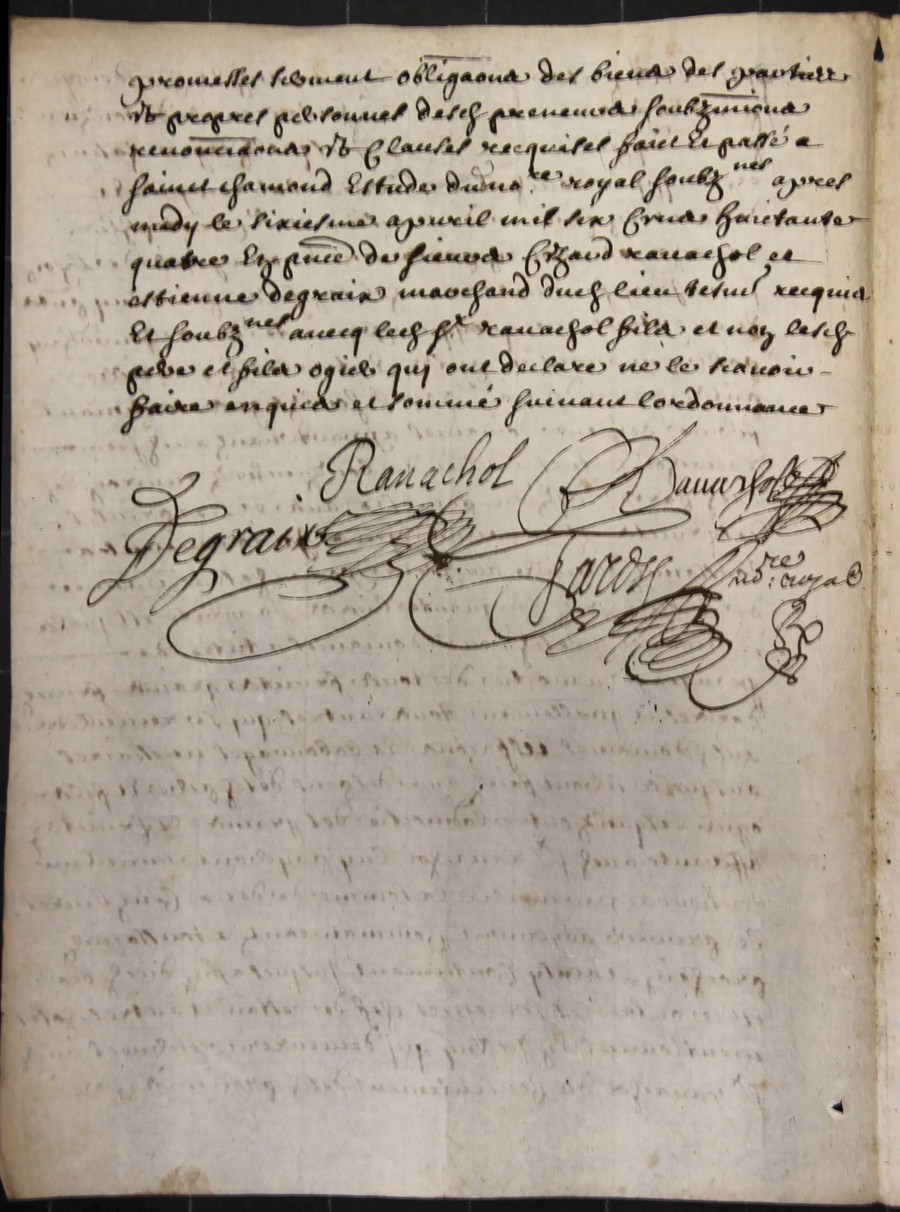 promesses serment obligaons des biens des parties
& propres personnes desd preneurs soubzmissions
renonciaons & Clauses requises faict Et passé a
sainct chamond Estude du no.re royal soubz nes apres
midy le sixiesme apvril mil six Cens huictante
quatre En pnce de sieurs ranachol et
estienne degraix marchand dud lieu tesm requis
Et soubz nes avecq led sr ranachol fils et non lesd
pere et fils ogier qui ont declare ne le scavoir
faire enquis et sommé suivant lordonnance
Ranachol
Ranachol
Degraix
Jardy
no.re royal